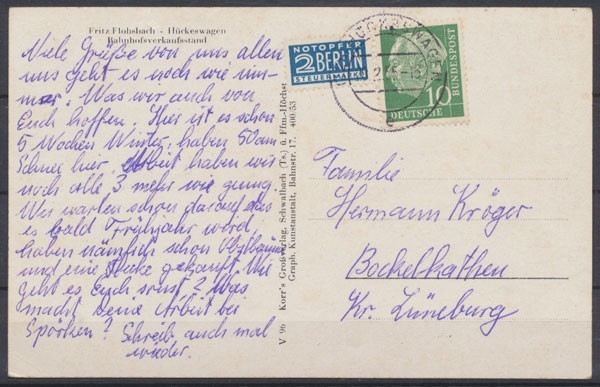 Fritz Flohsbach - Hückeswagen
Bahnhofsverkaufsstand
Viele Grüße von uns allen
uns geht es noch wie im-
mer. Was wir auch von
Euch hoffen. Hier ist es schon
5 Wochen Winter, haben 50 cm
Schnee hier. Arbeit haben wir
noch alle 3 mehr wie genug.
Wir warten schon darauf das
es bald Frühjahr werd,
haben nämlich schon Obstbäume
und eine Hecke gekauft. Wie
geht es Euch sonst? Was
macht Deine Arbeit bei
Spörken? Schreib auch mal
wieder.
V 96 Korr's Großverlag, Schwalbach (Ts.) ü. Ffm.-Höchst
Graph. Kunstanstalt, Bahnstr. 17. 400/53
NOTOPFER
2 BERLIN
STEUERMARKE
HÜCKESWAGEN
10
DEUTSCHE
BUNDESPOST
Familie
Hermann Kröger
Bockelkathen
Kr. Lüneburg